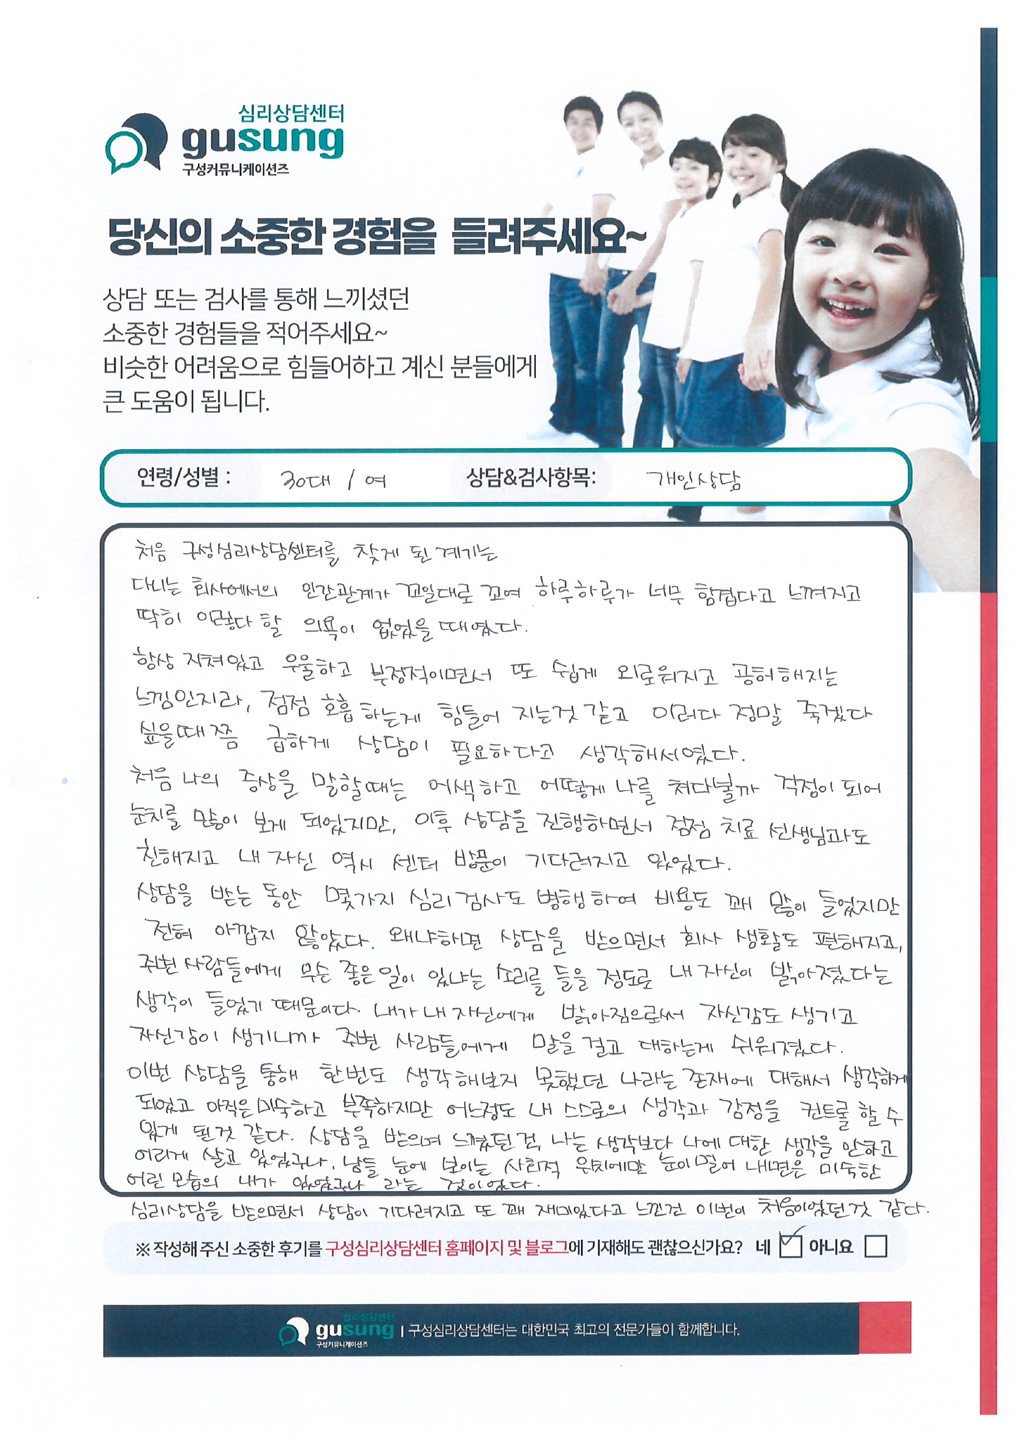 심리상담센터
gusung
구성커뮤니케이션즈
당신의 소중한 경험을 들려주세요~
상담 또는 검사를 통해 느끼셨던
소중한 경험들을 적어주세요~
비슷한 어려움으로 힘들어하고 계신 분들에게
큰 도움이 됩니다.
연령/성별 : 30대 / 여 상담&검사항목: 개인상담
처음 구성심리상담센터를 찾게 된 계기는
다니는 회사에서의 인간관계가 꼬일대로 꼬여 하루하루가 너무 힘겹다고 느껴지고
딱히 이렇다 할 의욕이 없었을 때였다.
항상 지쳐있고 우울하고 부정적이면서 또 쉽게 외로워지고 공허해지는
느낌인지라, 점점 호흡하는게 힘들어 지는것 같고 이러다 정말 죽겠다
싶을때쯤 급하게 상담이 필요하다고 생각해서였다.
처음 나의 증상을 말할때는 어색하고 어떻게 나를 쳐다볼까 걱정이 되어
눈치를 많이 보게 되었지만, 이후 상담을 진행하면서 점점 치료 선생님과도
친해지고 내 자신 역시 센터 방문이 기다려지고 있었다.
상담을 받는 동안 몇가지 심리검사도 병행하여 비용도 꽤 많이 들었지만
전혀 아깝지 않았다. 왜냐하면 상담을 받으면서 회사 생활도 편해지고,
주변 사람들에게 무슨 좋은일이 있냐는 소리를 들을 정도로 내 자신이 밝아졌다는
생각이 들었기 때문이다. 내가 내 자신에게 밝아짐으로써 자신감도 생기고
자신감이 생기니까 주변 사람들에게 말을 걸고 대하는게 쉬워졌다.
이번 상담을 통해 한번도 생각해보지 못했던 나라는 존재에 대해서 생각하게
되었고 아직은 미숙하고 부족하지만 어느정도 내 스스로의 생각과 감정을 컨트롤 할 수
있게 된것 같다. 상담을 받으며 느꼈던 건, 나는 생각보다 나에 대한 생각을 안하고
어리게 살고 있었구나, 남들 눈에 보이는 사회적 위치에만 눈이 멀어 내면은 미숙한
어린 모습의 내가 있었구나 라는 것이었다.
심리상담을 받으면서 상담이 기다려지고 또 꽤 재미있다고 느낀건 이번이 처음이었던것 같다.
※ 작성해 주신 소중한 후기를 구성심리상담센터 홈페이지 및 블로그에 기재해도 괜찮으신가요? 네 아니요
심리상담센터
gusung
구성커뮤니케이션즈
구성심리상담센터는 대한민국 최고의 전문가들이 함께합니다.